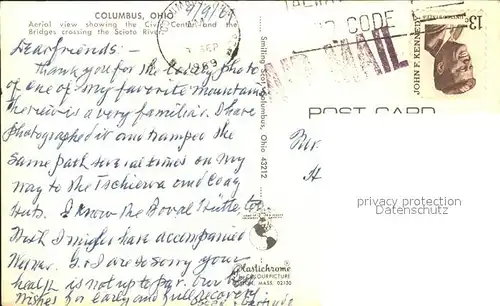 COLUMBUS, OHIO
Aerial view showing the Civic Center and the
Bridges crossing the Scioto River
9/9/69
SEP
1969
ZIP CODE
AIR MAIL
JOHN F. KENNEDY
13c
POST CARD
Dear friends:-
Thank you for the lovely photo
of one of my favorite mountains
the view is a very familiar. I have
photographed it and tramped the
same path several times on my
way to the Tschierva and Coaz
Huts. I know the Boval Hütte too.
Wish I might have accompanied
Werner. I am so sorry your
health is not up to par. Our best
wishes for early and full recovery
Smilting Columbus, Ohio 43212
Plastichrome
COLOURPICTURE
BOSTON, MASS. 02130
privacy protection
Datenschutz